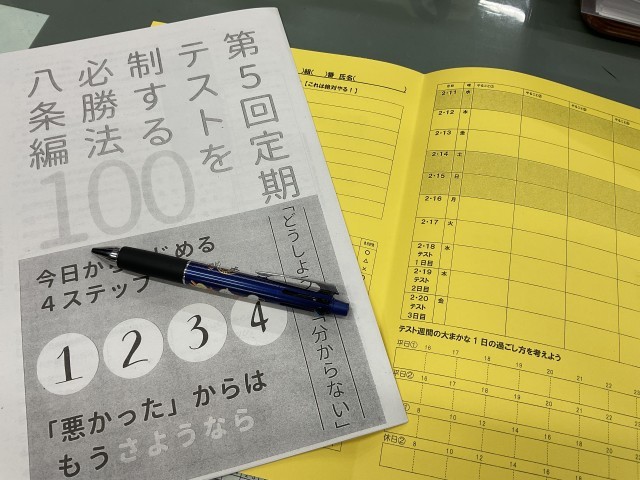 第5回定期
テストを
制する
必勝法
八条編
100
「どうしよう
分からない」
今日から
じめる
4ステップ
1 2 3 4
「悪かった」からは
もうさようなら
)組( )番 氏名(
【これは絶対やる！】
2・11 水
2・12 木
2・13 金
2・14 土
2・15 日
2・16 月
2・17 火
2・18 水
テスト
1日目
2・19 木
テスト
2日目
2・20 金
テスト
3日目
○
△
×
テスト週間の大まかな1日の過ごし方を考えよう
平日① 16 17 18 19 20 21 22 23
平日② 16 17 18 19 20 21 22 23
休日① 8 10 12 14 16 18 20 22
休日② 8 10 12 14 16 18 20 22